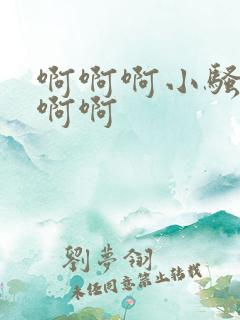 啊啊啊小骚
啊啊
劉夢翎
未经同意禁止转载